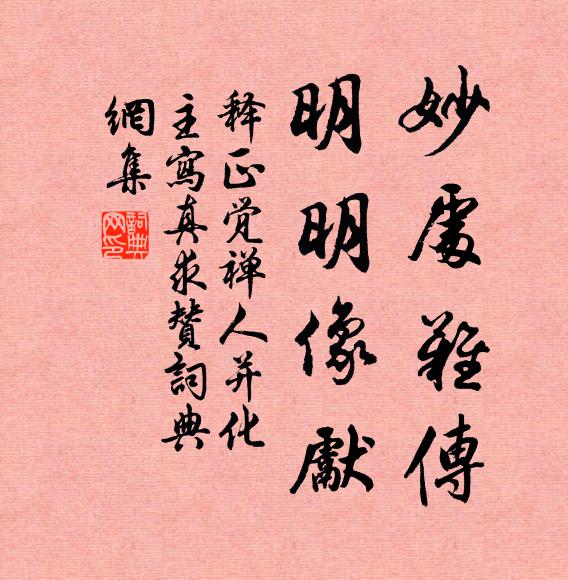 妙處難傳
明明像獻
释正觉禅人并化
主寫真求贊詞典
網集
詞典網印